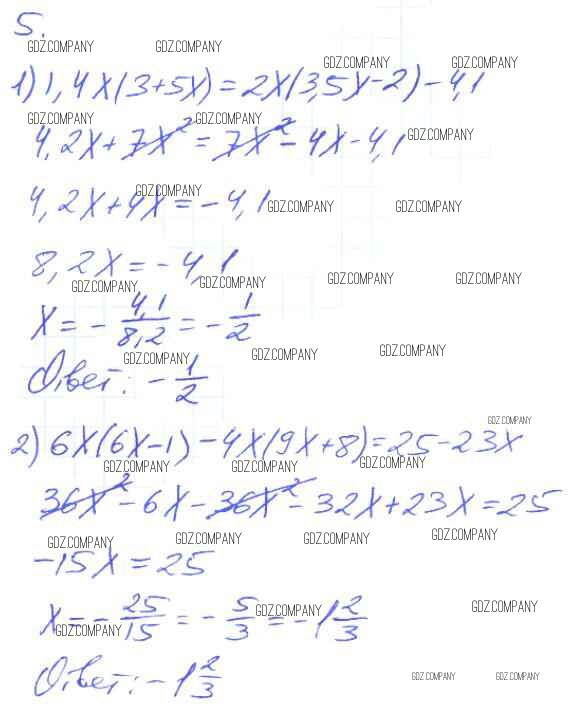 5.
GDZ.COMPANY GDZ.COMPANY
GDZ.COMPANY GDZ.COMPANY
1) 1,4x(3+5x)=2x(3,5x-2)-4,1
GDZ.COMPANY GDZ.COMPANY GDZ.COMPANY
4,2x+7x²=7x²-4x-4,1
GDZ.COMPANY GDZ.COMPANY GDZ.COMPANY
4,2x+4x=-4,1
8,2x=-4,1
GDZ.COMPANY GDZ.COMPANY GDZ.COMPANY GDZ.COMPANY
x=-4,1/8,2=-1/2
GDZ.COMPANY GDZ.COMPANY GDZ.COMPANY
Ответ: -1/2
GDZ.COMPANY
2) 6x(6x-1)-4x(9x+8)=25-23x
GDZ.COMPANY GDZ.COMPANY GDZ.COMPANY
36x²-6x-36x²-32x+23x=25
GDZ.COMPANY GDZ.COMPANY GDZ.COMPANY GDZ.COMPANY
-15x=25
x=-25/15=-5/3=-1 2/3
GDZ.COMPANY GDZ.COMPANY GDZ.COMPANY
Ответ: -1 2/3
GDZ.COMPANY GDZ.COMPANY